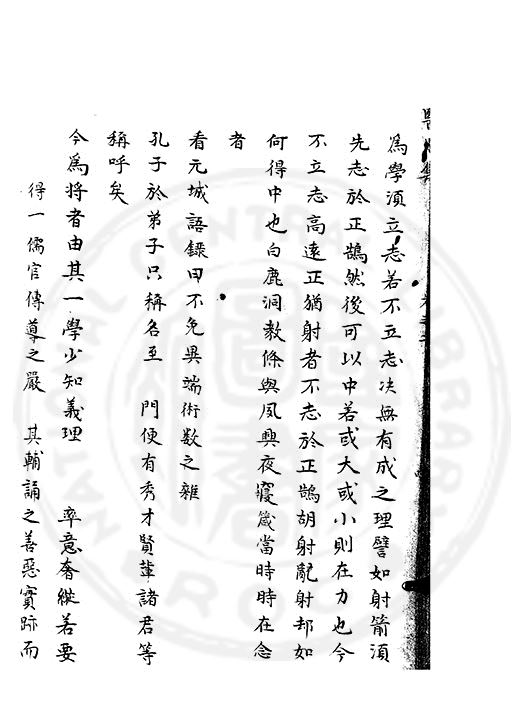 為學須立志若不立志決無有成之理譬如射箭須
先志於正鵠然後可以中若或大或小則在力也今
不立志高遠正猶射者不志於正鵠胡射亂射却如
何得中也白鹿洞教條與夙興夜寢箴當時時在念
者
看元城語錄曰不免異端術數之雜
孔子於弟子只稱名至 門便有秀才賢輩諸君等
稱呼矣
今為將者由其一學少知義理 率意奢縱若要
得一儒官傳導之嚴 其輔誦之善惡實跡而